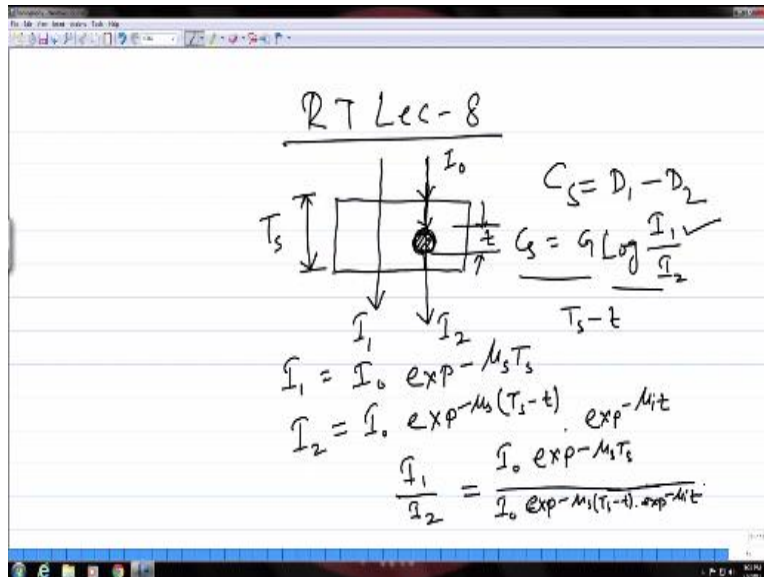 RT Lec-8
I₀
Tₛ
t
Cₛ = D₁ - D₂
Cₛ = G Log I₁/I₂ ✓
Tₛ - t
I₁ I₂
I₁ = I₀ exp - μₛTₛ
I₂ = I₀ exp^-μₛ(Tₛ-t) . exp^-μᵢt
I₁/I₂ = I₀ exp - μₛTₛ / I₀ exp - μₛ(Tₛ-t) . exp^-μᵢt